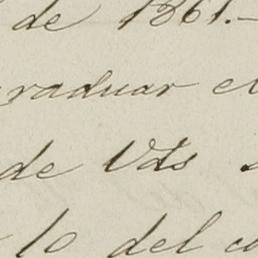 de 1861.-
raduar el
de Vds
lo del co